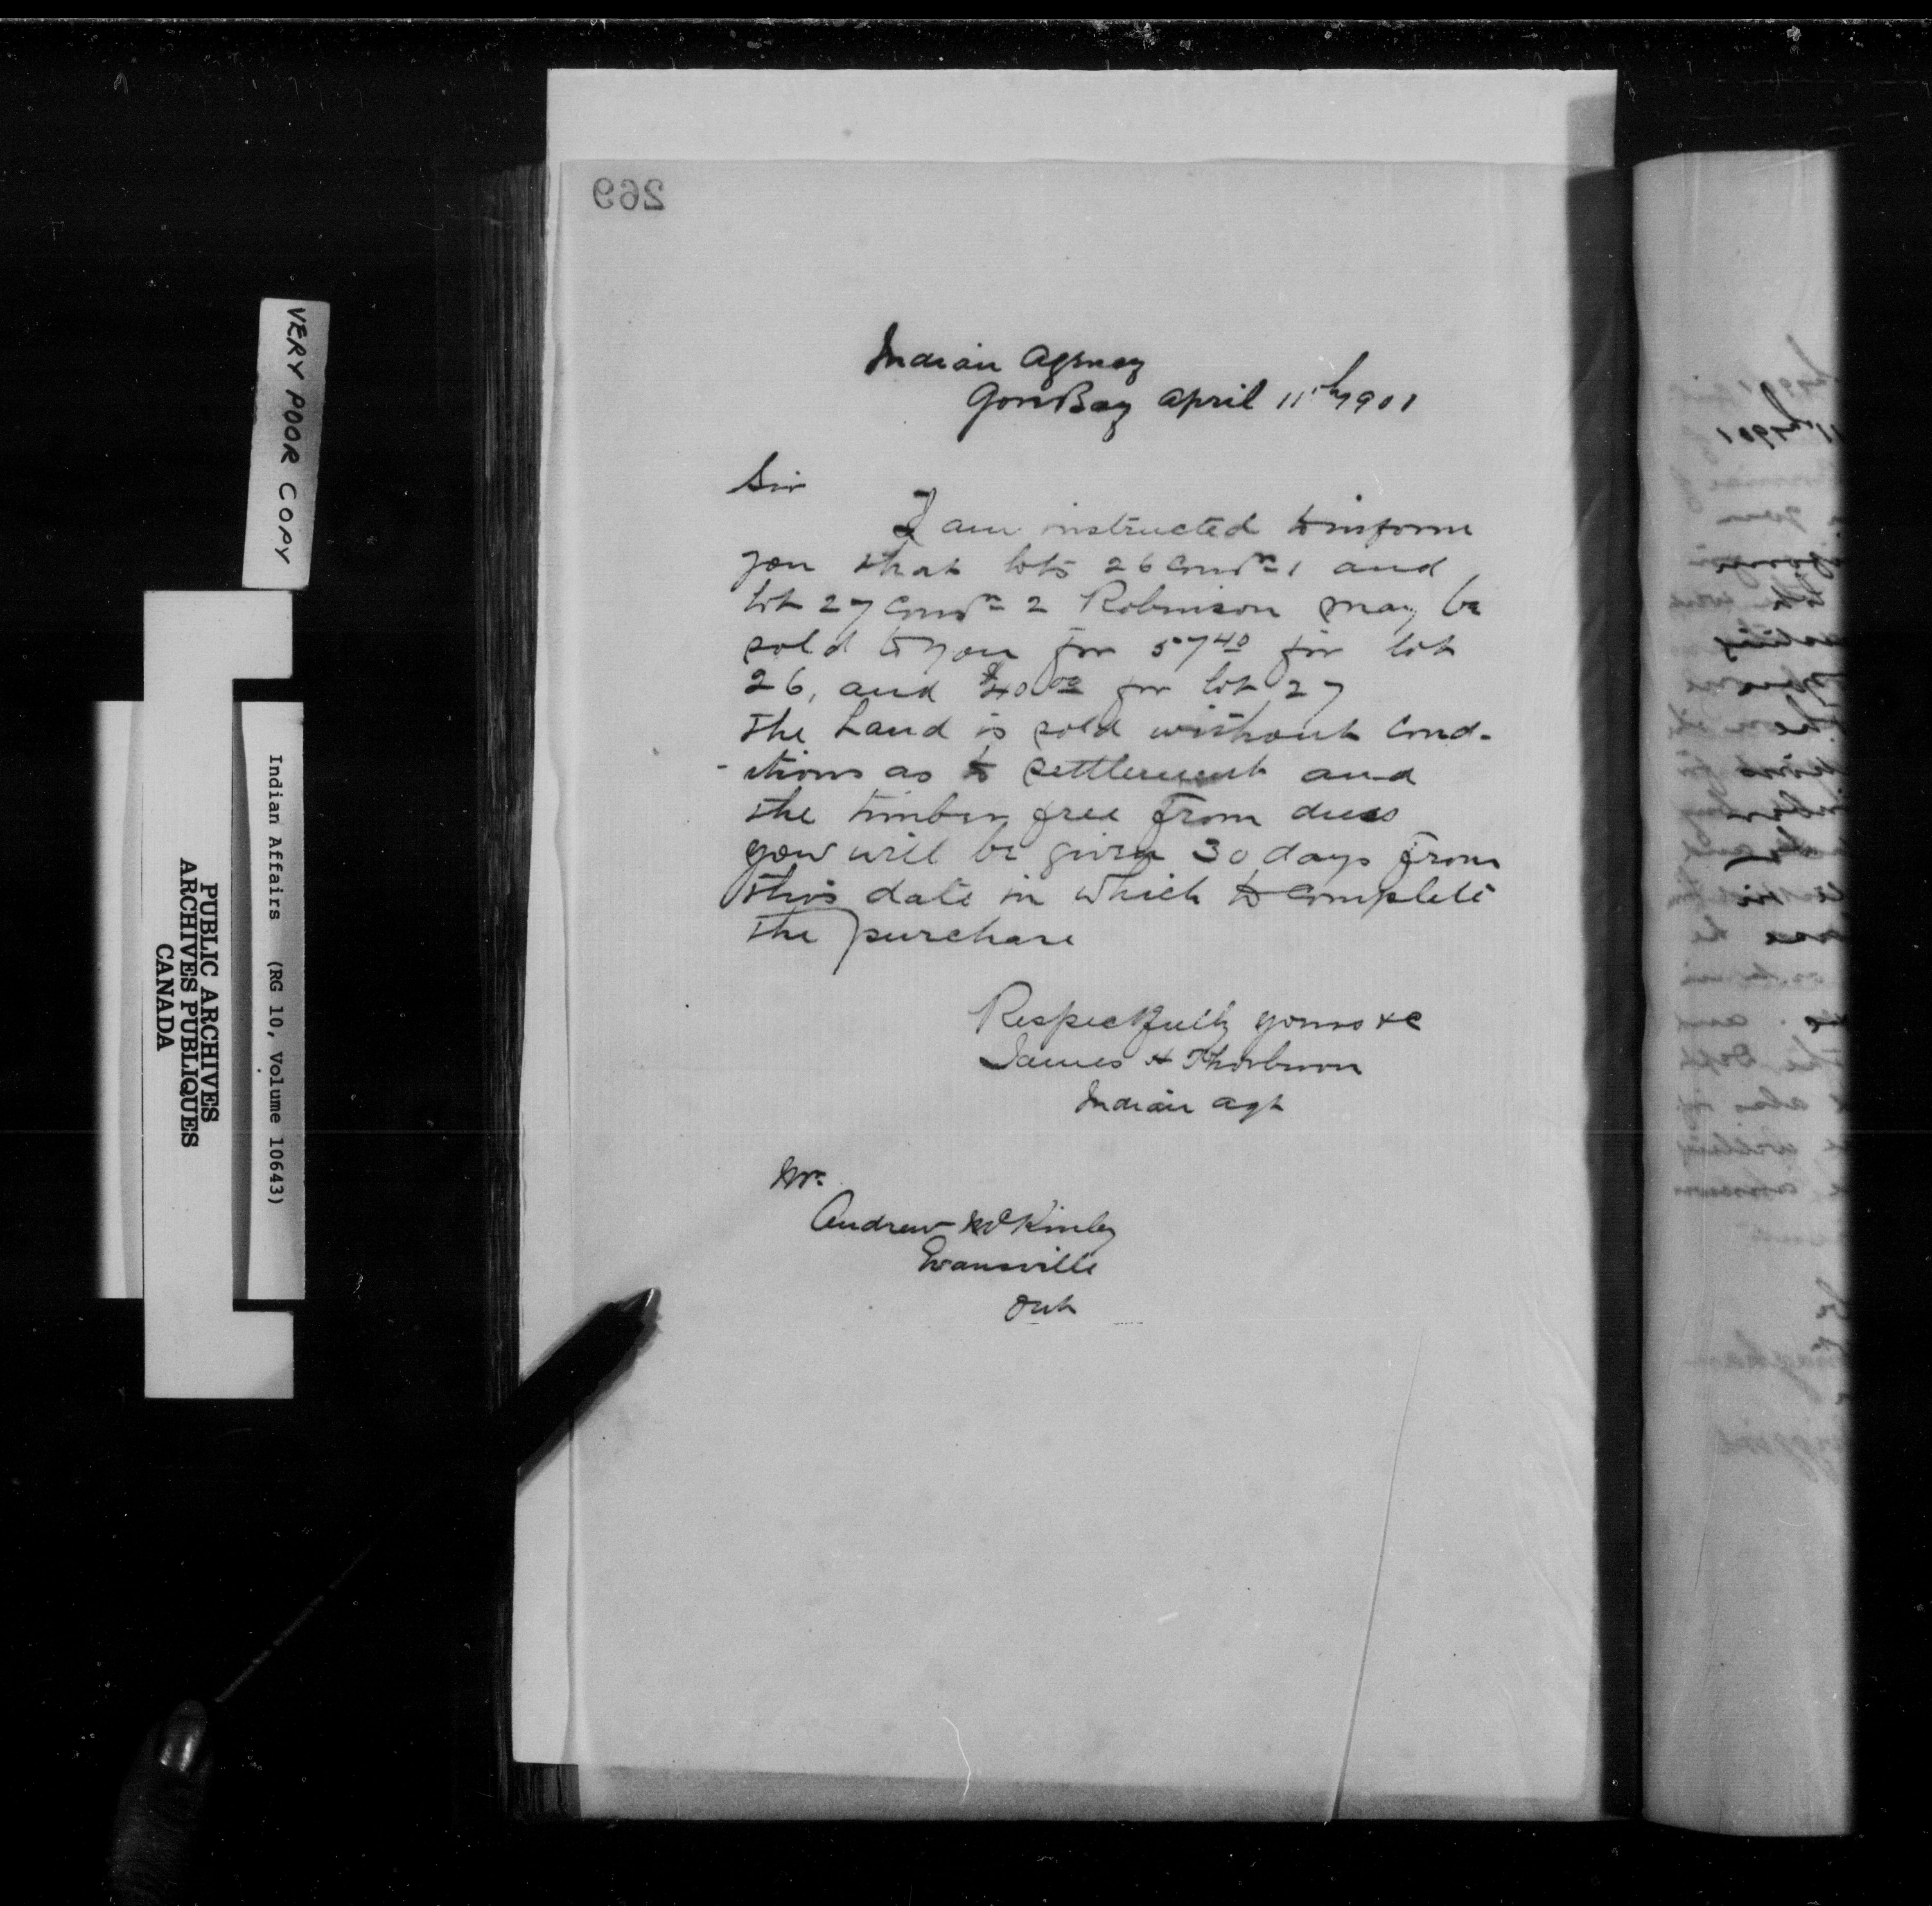 269
Indian Agency
Gore Bay April 11th 1901
Sir
I am instructed to inform
you that lots 26 Conn 1 and
lot 27 Conn 2 Robinson may be
sold to you for 57 40 for lot
26, and $40 00 for lot 27
The Land is sold without Cond-
-itions as to settlement and
the timber free from dues
you will be given 30 days from
this date in which to complete
the purchase
Respectfully yours &c
James H Thorburn
Indian Agt
Mr.
Andrew McKinley
Evansville
Ont
VERY POOR COPY
Indian Affairs (RG 10, Volume 10643)
PUBLIC ARCHIVES
ARCHIVES PUBLIQUES
CANADA